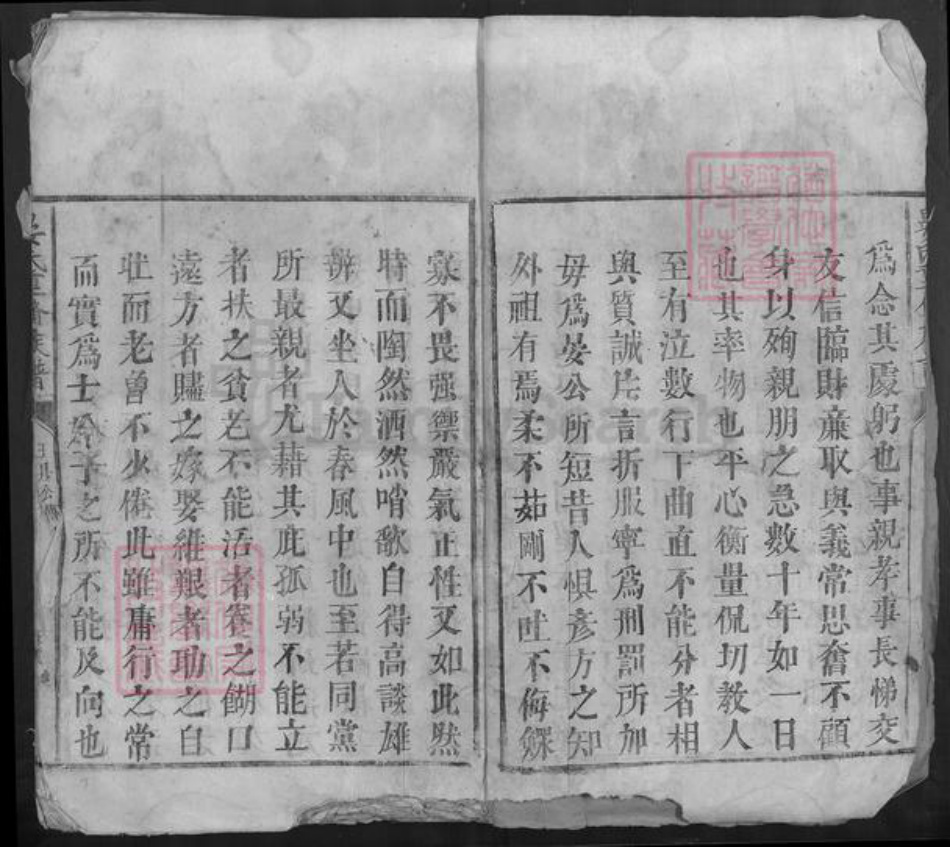 為念其處躬也事親孝事長悌交
友信臨財廉取與義常思奮不顧
身以殉親朋之急數十年如一日
也其率物也平心衡量侃切教人
至有泣數行下曲直不能分者相
與質誠片言折服寧為刑罰所加
毋為晏公所短昔人懼彥方之知
外祖有焉柔不茹剛不吐不侮鰥
寡不畏强禦嚴氣正性又如此然
時而陶然洒然哨歌自得高談雄
辨又坐人於春風中也至若同黨
所最親者尤藉其庇孤弱不能立
者扶之貧老不能活者養之餬口
遠方者贐之嫁娶維艱者助之自
壯而老曾不少倦此雖庸行之常
而實為士君子之所不能及向也